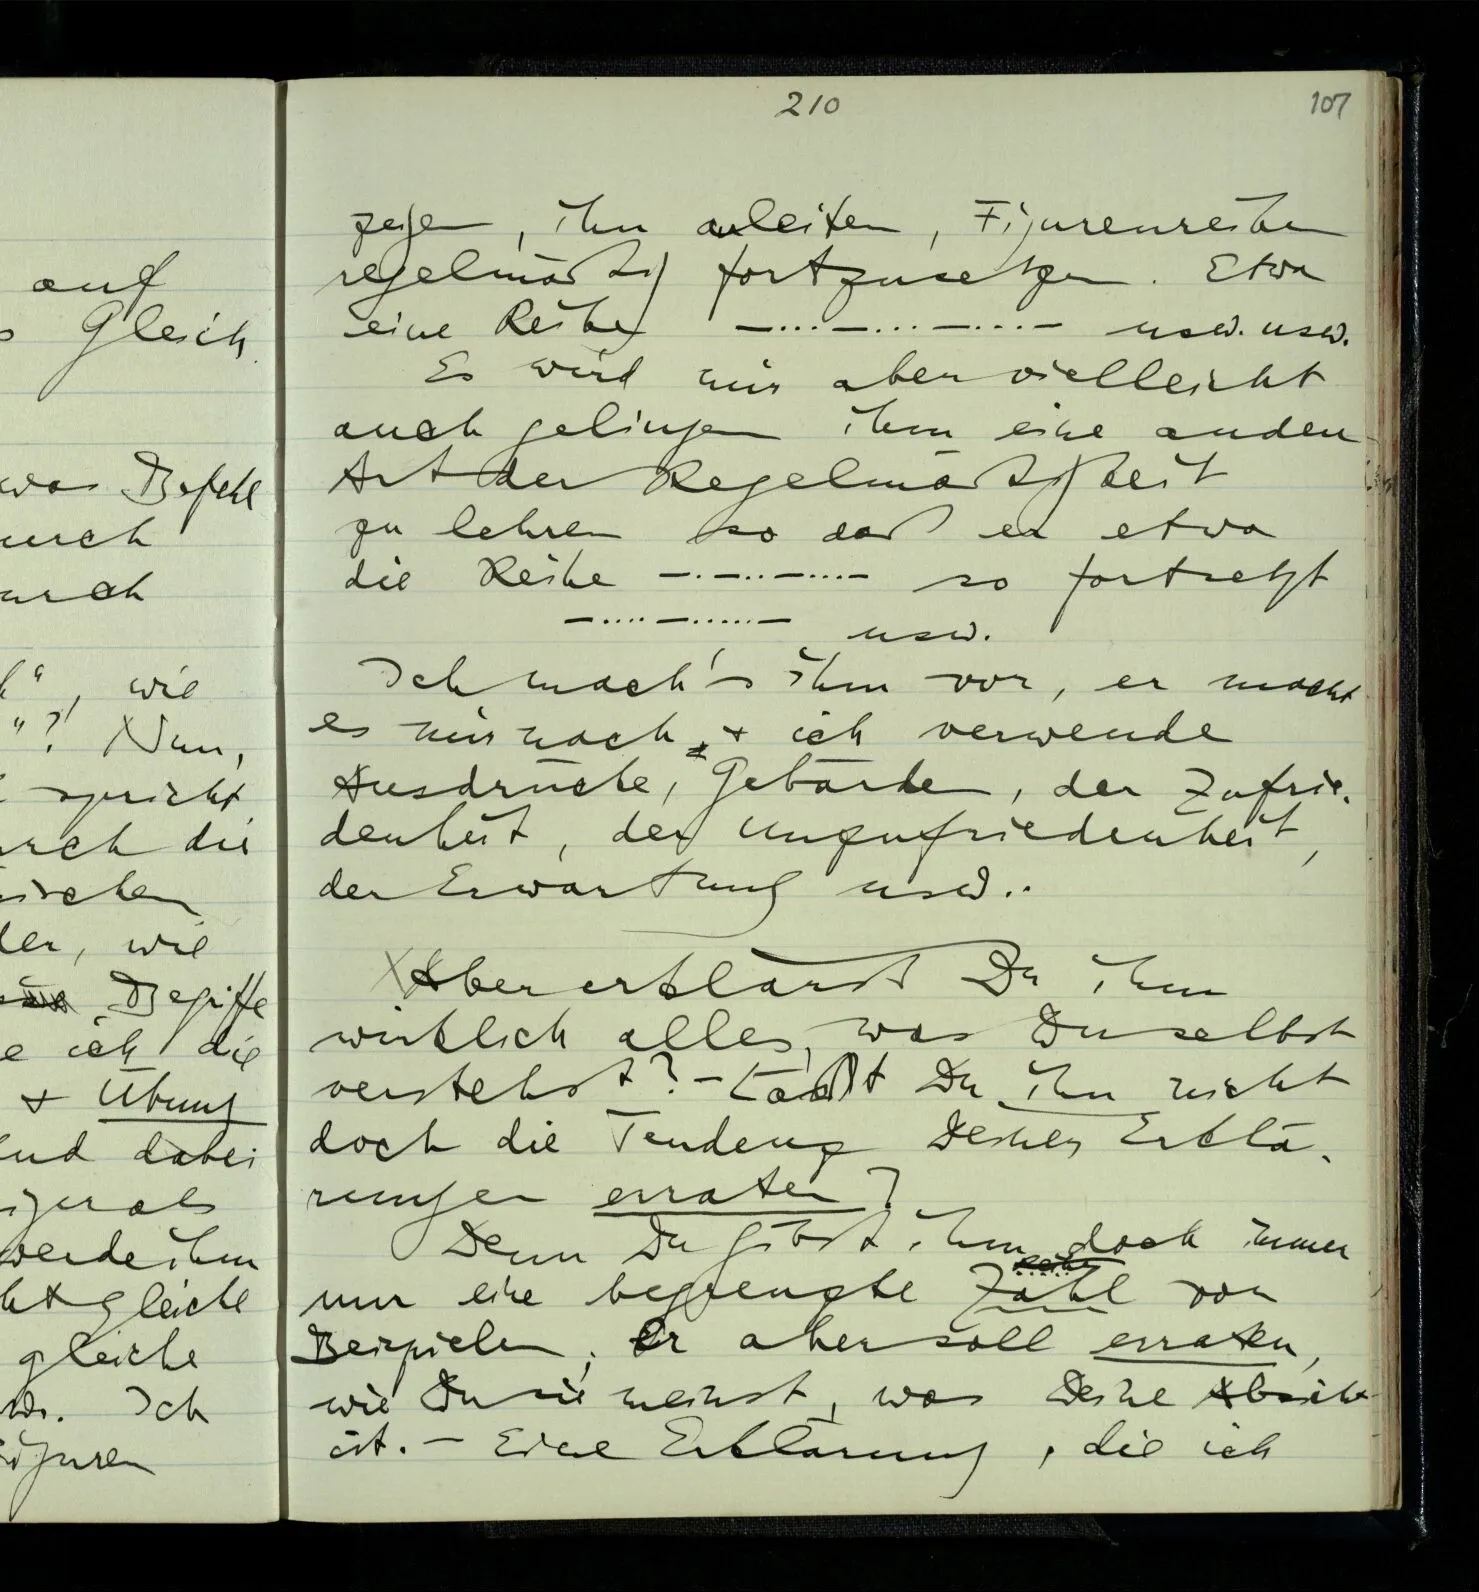 auf
Gleich
was Befehl
durch
durch
“, wie
“? Nun,
spricht
durch die
der, wie
Begriffe
ich die
+ Übung
und dabei
werde ihm
gleiche
gleiche
Ich
Figuren
210
107
zeigen, ihn anleiten, Figurenreihen
regelmäßig fortzusetzen. Etwa
eine Reihe –...–...–...– usw. usw.
Es wird mir aber vielleicht
auch gelingen ihm eine andere
Art der Regelmäßigkeit
zu lehren so daß er etwa
die Reihe –.–..–...– so fortsetzt
–....–.....– usw.
Ich mach's ihm vor, er macht
es mir nach, + ich verwende
Ausdrücke, Gebärden, der Zufrie-
denheit, der Unzufriedenheit,
der Erwartung usw..
Aber erklärst Du ihm
wirklich alles, was Du selbst
verstehst? – Läßt Du ihn nicht
doch die Tendenz Deiner Erklä-
rungen erraten?
Denn Du gibst ihm doch immer
nur eine begrenzte Zahl von
Beispielen; Er aber soll erraten,
wie Du sie meinst, was Deine Absicht
ist. – Eine Erklärung, die ich